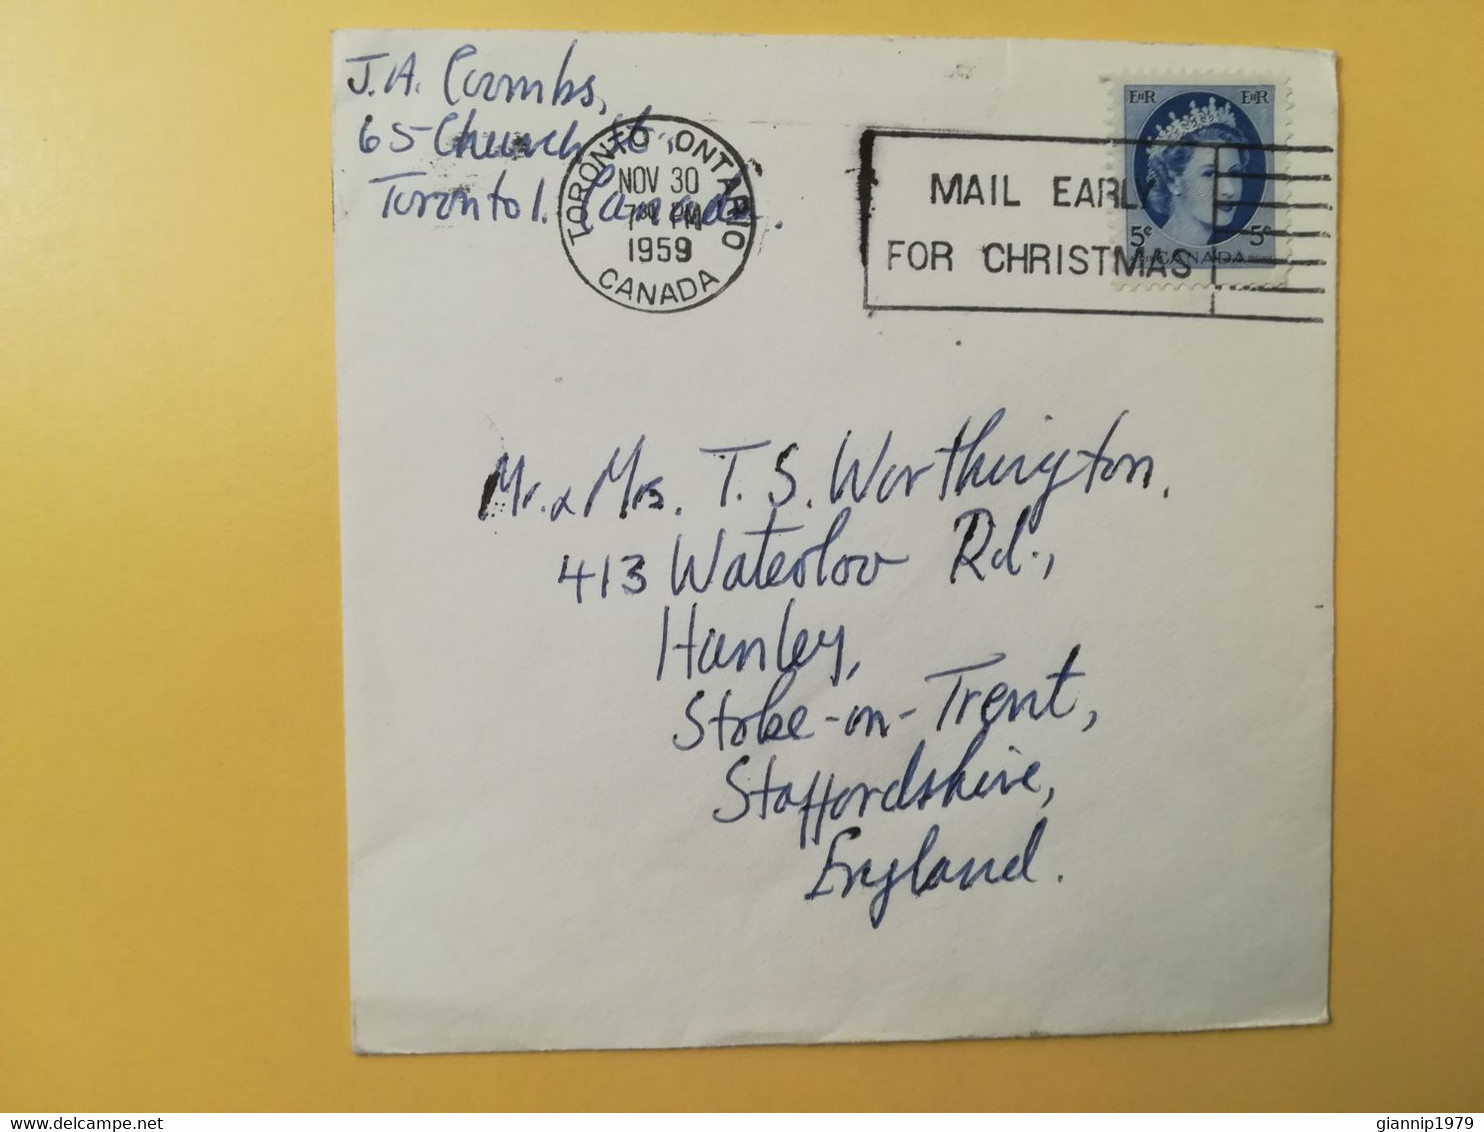 J.A. Coombs,
65 Church St.,
Toronto 1. Canada.
TORONTO ONTARIO
NOV 30
PM
1959
CANADA
MAIL EARLY
FOR CHRISTMAS
EIIR EIIR
5¢ 5¢
CANADA
Mr. & Mrs. T. S. Worthington.
413 Waterloo Rd.,
Hanley,
Stoke-on-Trent,
Staffordshire,
England.
giannip1979